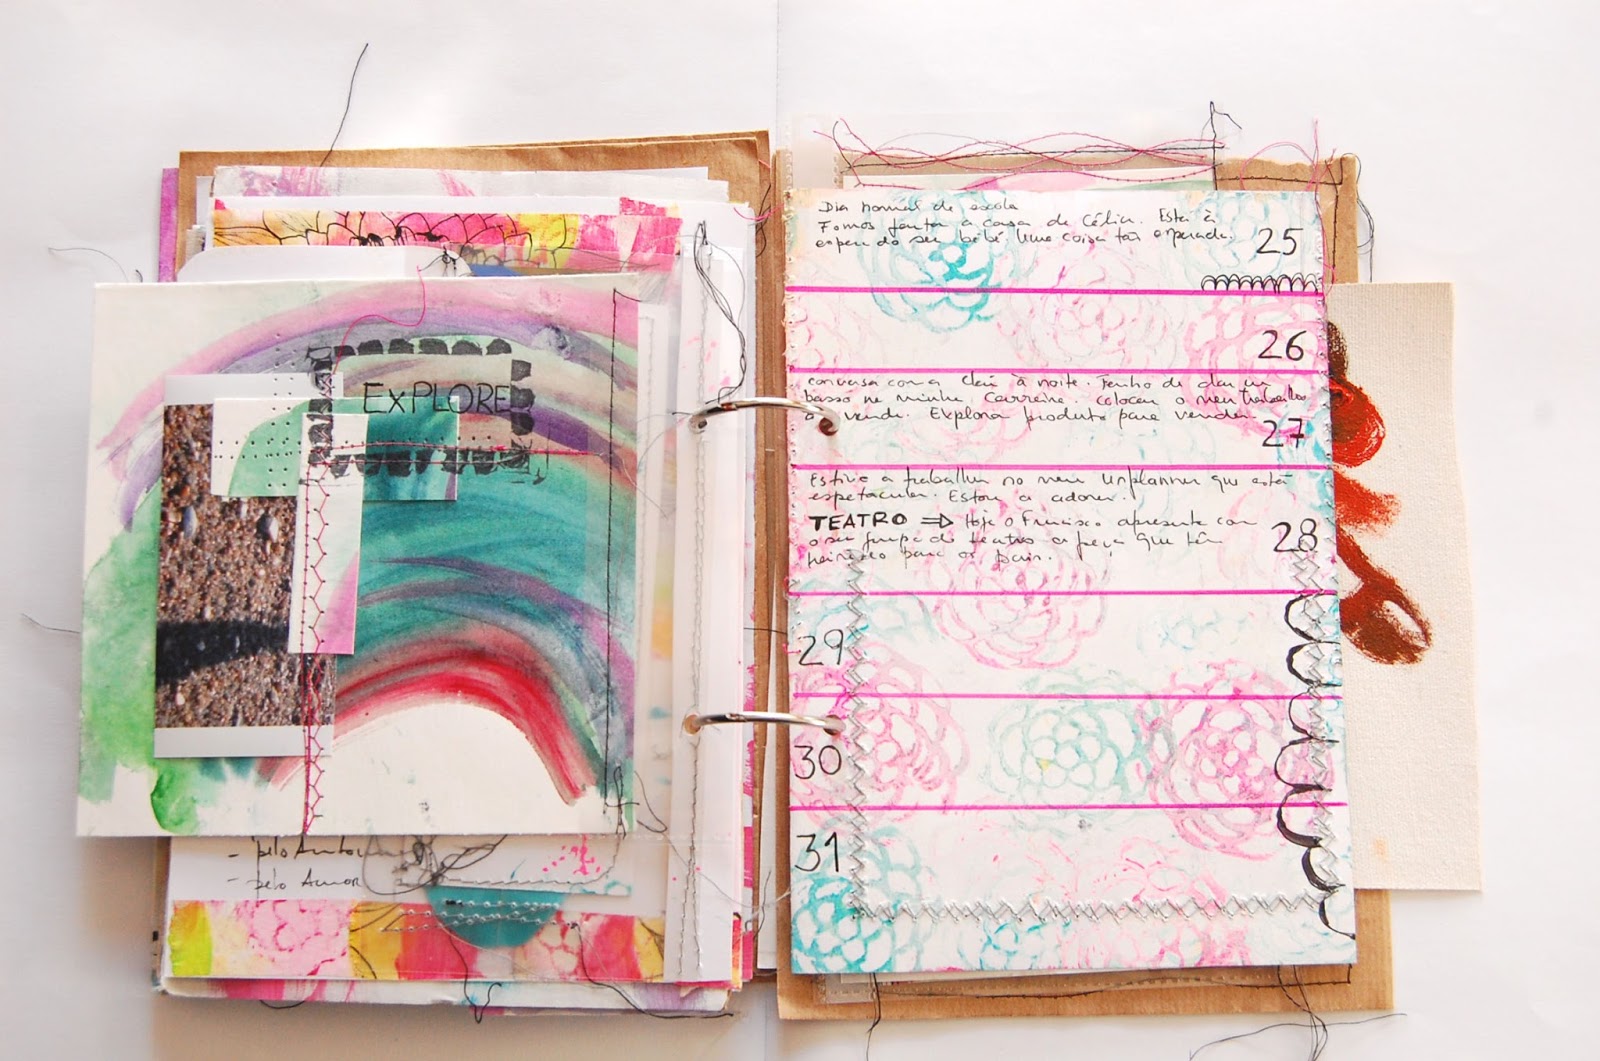 EXPLORE
- pelo
- pelo Amor
Dia normal de escola
Fomos jantar à casa de Célia. Está à
espera do seu bébé. Uma coisa tão esperada.
25
26
conversa com a à noite. Tenho de dar um
passo na minha carreira. Colocar o meu trabalho
à venda. Explorar produto para vender.
27
Estive a trabalhar no meu unplanner que está
espetacular. Estou a adorar.
TEATRO ⇒ Hoje o Francisco apresenta com
o seu grupo de teatro a peça que têm
para os pais.
28
29
30
31